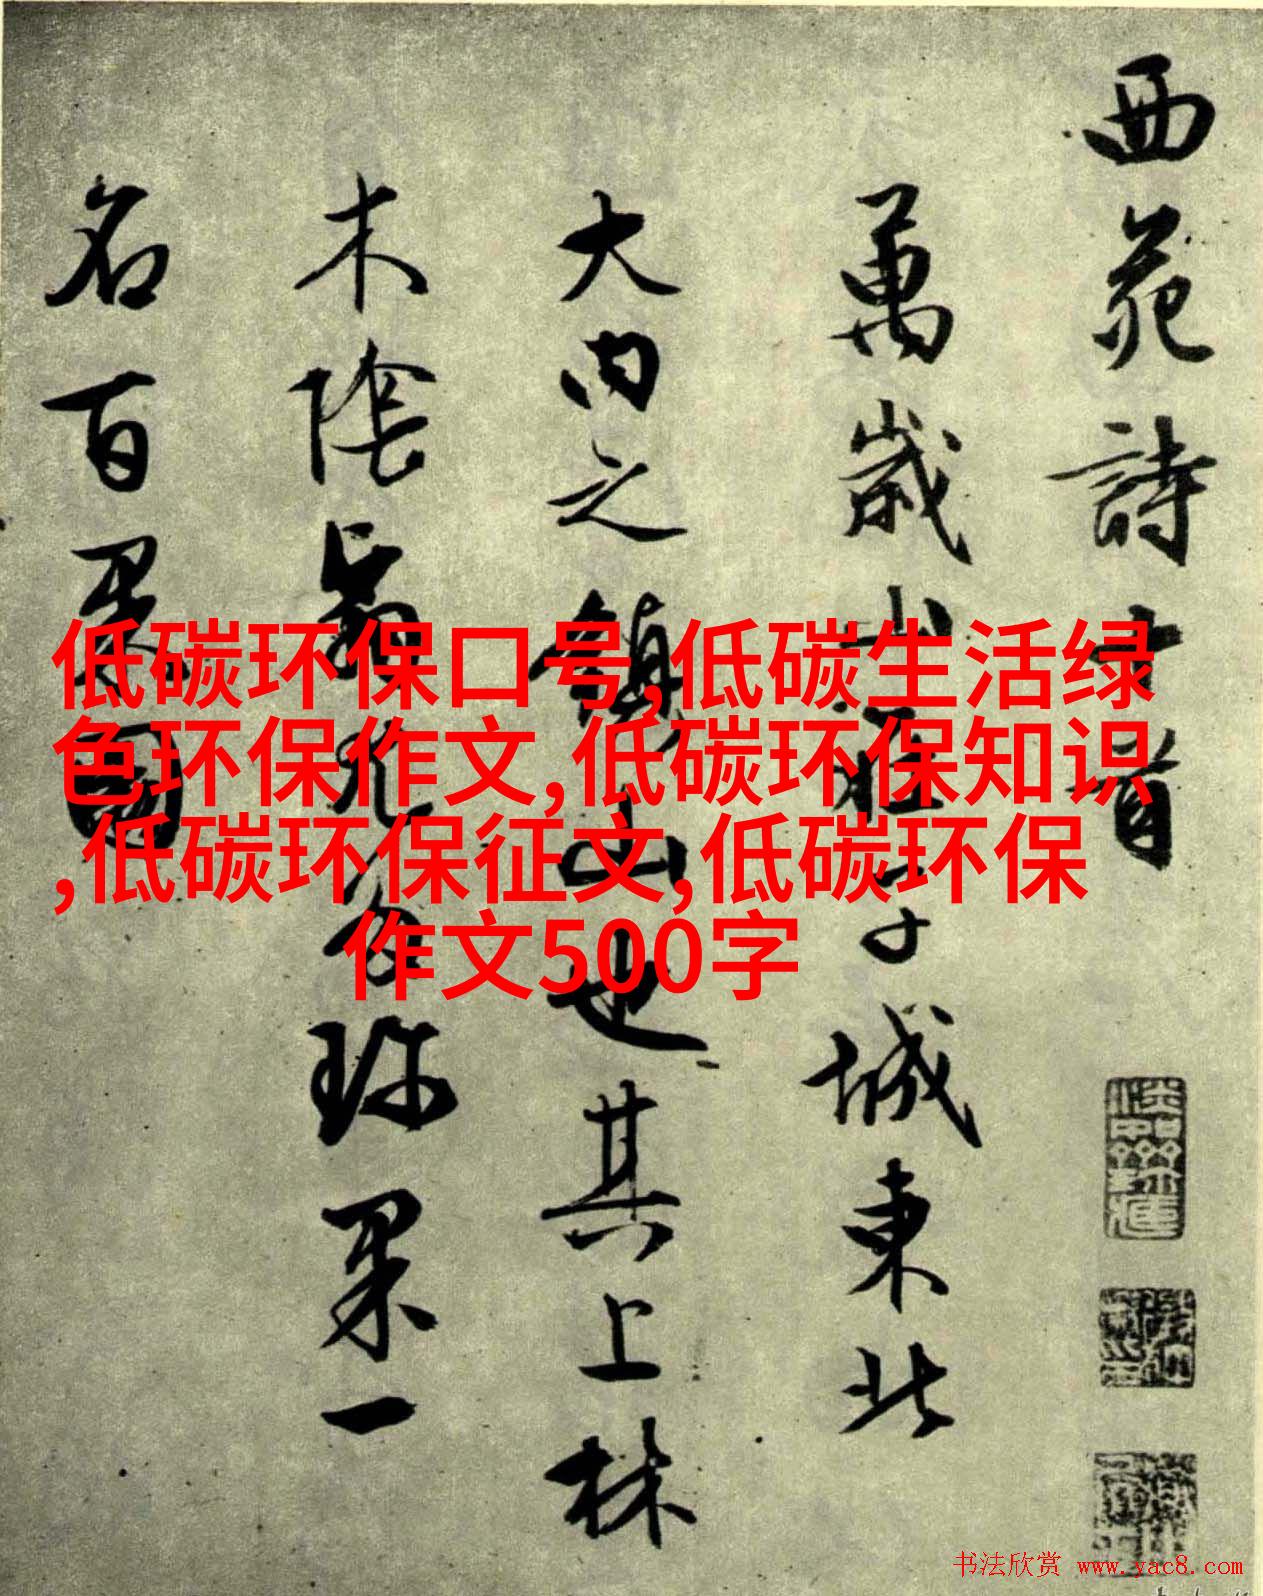 西苑詩十首
萬歲山在子城東北
大内之鎮山也其上林
木陰翳尤多珎果一
名百果園
低碳环保口号,低碳生活绿
色环保作文,低碳环保知识
,低碳环保征文,低碳环保
作文500字
书法欣赏 www.yac8.com